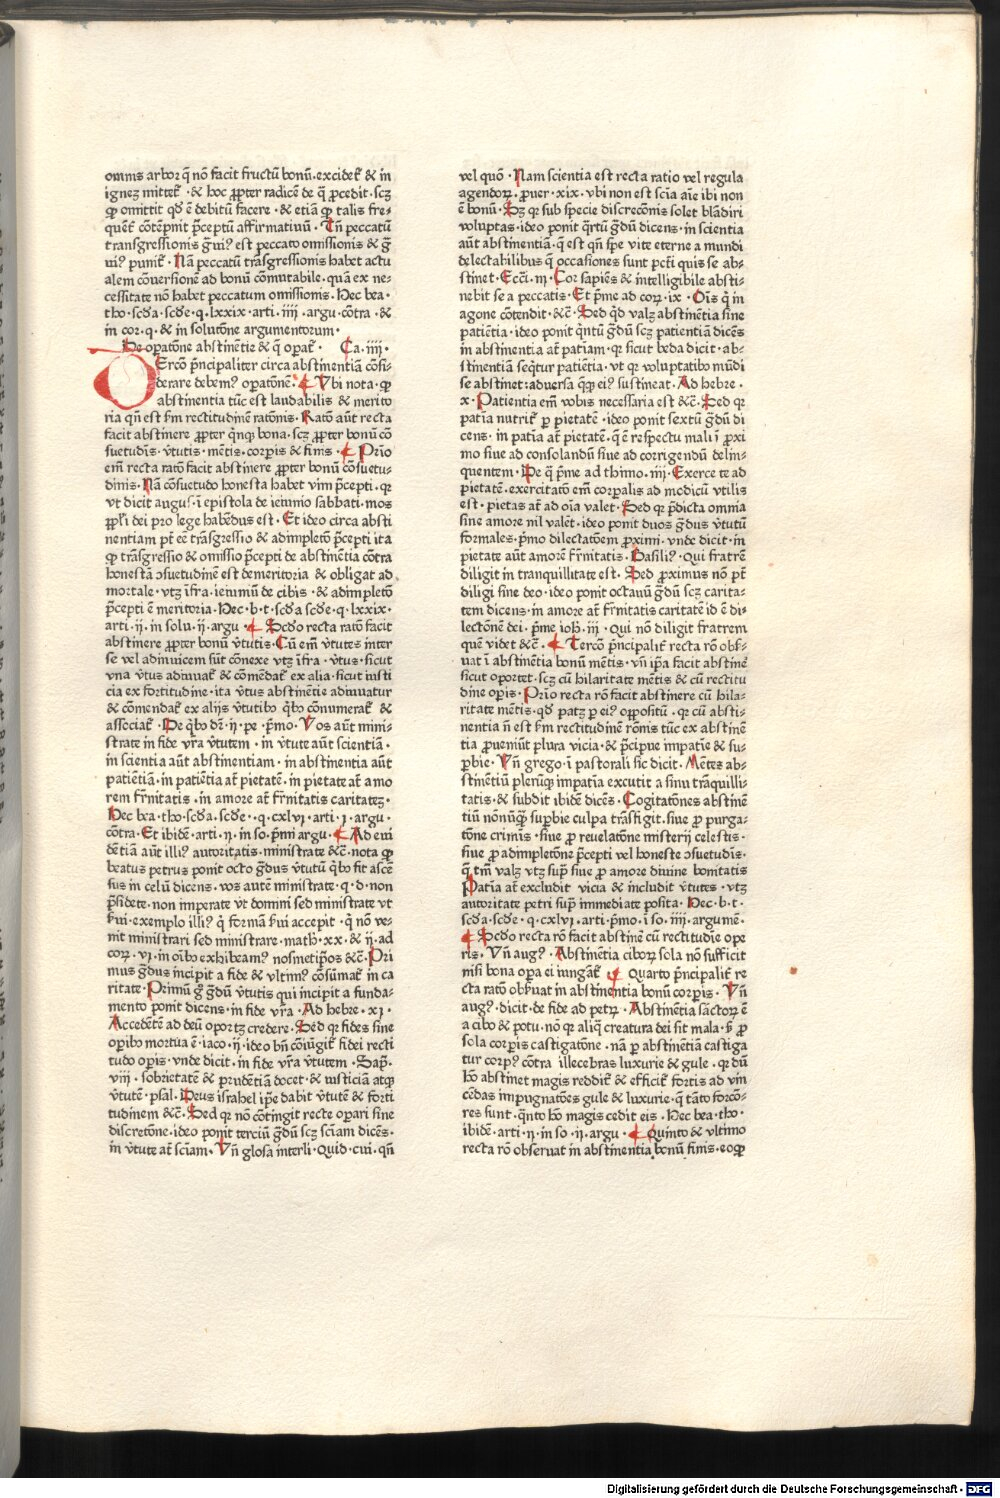 omnis arbor q̄ nō facit fructū bonū. excidet̄ & in
ignez mittet̄ · & hoc ꝓpter radicē de q̄ ꝓcedit · scꝫ
ꝙ omittit qđ ē debitū facere · & etiā ꝙ talis fre⸗
quēt̄ cōtēpnit p̄ceptū affirmatiuū · Tn̄ peccatū
transgressionis g̃uiꝰ est peccato omissionis & g̃
uiꝰ punit̄ · Nā peccatū trāsgressionis habet actu
alem cōuersionē ad bonū cōmutabile · quā ex ne⸗
cessitate nō habet peccatum omissionis · Hec bea ·
tho · scđa · scđe · q · lxxix · arti · iiii · argu · cōtra · &
in cor · q · & in solutōne argumentorum ·
De opatōne abstinētie & q̄ opat̄ · Ca · iiii ·
Ercō p̄ncipaliter circa abstinentiā cōsi⸗
derare debemꝰ opatōnē · Vbi nota · ꝙ
abstinentia tūc est laudabilis & merito
ria qn̄ est km rectitudinē ratōnis · Ratō aūt recta
facit abstinere ꝓpter q̄nqꝫ bona · scꝫ ꝓpter bonū cō
suetudis · v̄tutis · mētis · corpis & finis · Prio
em̄ recta ratō facit abstinere ꝓpter bonū cōsuetu⸗
dinis · Nā cōsuetudo honesta habet vim p̄cepti · qꝛ
vt dicit augus · ī epistola de ieiunio sabbati · mos
ꝓpl̄i dei pro lege habēdus est · Et ideo circa absti
nentiam pt̄ eē trāsgressio & adimpletō p̄cepti ita
ꝙ trāsgressio & omissio p̄cepti de abstinētia cōtra
honestā ↄsuetudinē est demeritoria & obligat ad
mortale · vtꝫ īfra · ieiuniū de cibis · & adimpletō
p̄cepti ē meritoria · Hec · b · t · scđa scđe · q · lxxix ·
arti · ij · in solu · ij · argu · Scđo recta ratō facit
abstinere ꝓpter bonū v̄tutis · Cū em̄ v̄tutes inter
se vel adinuicem sūt cōnexe vtꝫ īfra · v̄tus · sicut
vna v̄tus adiuuat̄ & cōmēdat̄ ex alia · sicut iusti
cia ex fortitudine · ita v̄tus abstinētie adiuuatur
& cōmendat̄ ex alijs v̄tutibꝰ q̄bꝰ cōnumerat̄ &
associat̄ · De q̄bꝰ dr̄ · ij · pe · p̄mo · Vos aūt mini⸗
strate in fide vr̄a v̄tutem · in v̄tute aūt scientiā ·
in scientia aūt abstinentiam · in abstinentia aūt
patiētiā · in patiētia at̄ pietatē · in pietate at̄ amo
rem fr̄nitatis · in amore at̄ fr̄nitatis caritatez ·
Hec bea · tho · scđa · scđe · q · cxlvi · arti · i · argu ·
cōtra · Et ibidē · arti · ij · in so · p̄mi argu · Ad eui
dētiā aūt illiꝰ autoritatis · ministrate &c̄ · nota ꝙ
beatus petrus ponit octo g̃dus v̄tutū q̄bꝰ fit ascē
sus in celū dicens · vos autē ministrate · q · d · non
p̄sidete · non imperate vt domini sed ministrate vt
s̄ui · exemplo illiꝰ q̄ formā s̄ui accepit · q̄ nō ve⸗
nit ministrari sed ministrare · math · xx · & ij · ad
coꝝ · vi · in oībꝰ exhibeamꝰ nosmetipōs &c̄ · Pri
mus g̃dus incipit a fide & vltimꝰ cōsūmat̄ in ca
ritate · Primū g̃ g̃dū v̄tutis qui incipit a funda⸗
mento ponit dicens · in fide vr̄a · Ad hebre · xi ·
Accedētē ad deū oportꝫ credere · Sed qꝛ fides sine
opibꝰ mortua ē · iaco · ij · ideo bn̄ cōiūgit̄ fidei recti
tudo opis · vnde dicit · in fide vr̄a v̄tutem · Sap̄ ·
viii · sobrietatē & prudētiā docet · & iusticiā atqꝫ
v̄tutē · psal · Deus israhel ip̄e dabit v̄tutē & forti
tudinem &c̄ · Sed qꝛ nō cōtingit recte opari sine
discretōne · ideo ponit terciū g̃dū scꝫ sciam dicēs ·
in v̄tute at̄ sciam · Vn̄ glosa interli · Quid · cui · qn̄
vel quō · Nam scientia est recta ratio vel regula
agendoꝝ · ꝓuer · xix · vbi non est scia aīe ibi non
ē bonū · Sꝫ qꝛ sub specie discrecōnis solet blādiri
voluptas · ideo ponit q̄rtū g̃dū dicens · in scientia
aūt abstinentiā · q̄ est qn̄ spe vite eterne a mundi
delectabilibus q̄ occasiones sunt pctī quis se ab⸗
stinet · Eccī · iii · Cor sapiēs & intelligibile absti⸗
nebit se a peccatis · Et p̄me ad coꝝ · ix · Oīs q̄ in
agone cōtendit · &c̄ · Sed qđ valꝫ abstinētia sine
patiētia · ideo ponit q̄ntū g̃dū scꝫ patientiā dicēs
in abstinentia at̄ patiam · qꝛ sicut beda dicit · ab⸗
stinentiā seq̄tur patiētia · vt qꝛ voluptatibꝰ mūdi
se abstinet : aduersa q̄ꝗ eiꝰ sustineat · Ad hebre ·
x · Patientia em̄ vobis necessaria est &c̄ · Sed qꝛ
patīa nutrit̄ p pietatē · ideo ponit sextū g̃dū di
cens · in patīa at̄ pietatē · q̄ ē respectu mali ī ꝓxi
mo siue ad consolandū siue ad corrigendū delin⸗
quentem · De q̄ p̄me ad thimo · iiii · Exerce te ad
pietatē · exercitatō em̄ corpalis ad modicū vtilis
est · pietas at̄ ad oīa valet · Sed qꝛ p̄dicta omnia
sine amore nil valēt · ideo ponit duos g̃dus v̄tutū
formales · p̄mo dilectatōem ꝓximi · vnde dicit · in
pietate aūt amorē fr̄nitatis · Basiliꝰ · Qui fratrē
diligit in tranquillitate est · Sed ꝓximus nō pt̄
diligi sine deo · ideo ponit octauū g̃dū scꝫ carita⸗
tem dicens · in amore at̄ fr̄nitatis caritatē id ē di⸗
lectōnē dei · p̄me ioh̄ · iii · Qui nō diligit fratrem
quē videt &c̄ · Tercō p̄ncipalit̄ recta rō obf⸗
uat ī abstinētia bonū mētis · vn̄ ip̄a facit abstinē
sicut oportet · scꝫ cū hilaritate mētis & cū rectitu
dīe opis · Prio recta rō facit abstinere cū hila⸗
ritate mētis · qđ patꝫ p eiꝰ oppositū · qꝛ cū absti⸗
nentia n̄ est s̄m rectitudinē rōnis tūc ex abstinē
tia ꝓueniūt plura vicia · & p̄cipue impatīe & su⸗
pbie · Vn̄ grego · ī pastorali sic dicit · Mētes ab⸗
stinētiū plerūqꝫ impatīa excutit a sinu trāquilli⸗
tatis · & subdit ibidē dicēs · Cogitatōnes abstinē
tiū nōnūq̄ supbie culpa trāsfigit · siue ꝓ purga⸗
tōne crimīs · siue ꝓ reuelatōne misterij celestis ·
siue ꝓ adimpletōne p̄cepti vel honeste ↄsuetudīs ·
q̄ tm̄ valꝫ vtꝫ sup̄ siue ꝓ amore diuine bonitatis
Patīa at̄ excludit vicia & includit v̄tutes · vtꝫ
autoritate petri sup̄ immediate posita · Hec · b · t ·
scđa · scđe · q · cxlvi · arti · p̄mo · ī so · iiii · argumē ·
Scđo recta rō facit abstinē cū rectitudīe ope
ris · Vn̄ augꝰ · Abstinētia ciboꝝ sola nō sufficit
nisi bona opa ei iungāt̄ · Quarto p̄ncipalit̄ re
cta ratō obs̄uat in abstinentia bonū corpis · Vn̄
augꝰ · dicit · de fide ad petꝝ · Abstinētia sāctoꝝ ē
a cibo & potu · nō qꝛ aliq̄ creatura dei sit mala · s̄ ꝓ
sola corpis castigatōne · nā p abstinētiā castiga
tur corpꝰ cōtra illecebras luxurie & gule · qꝛ dū
hō abstinet magis reddit̄ & efficit̄ fortis ad vin
cēdas impugnatōes gule & luxurie · q̄ tāto forcō⸗
res sunt · q̄nto hō magis cedit eis · Hec bea · tho ·
ibidē · arti · ij · in so · ij · argu · Quinto & vltimo
recta rō obseruat in abstinentia bonū finis · eo ꝙ
Digitalisierung gefördert durch die Deutsche Forschungsgemeinschaft · DFG